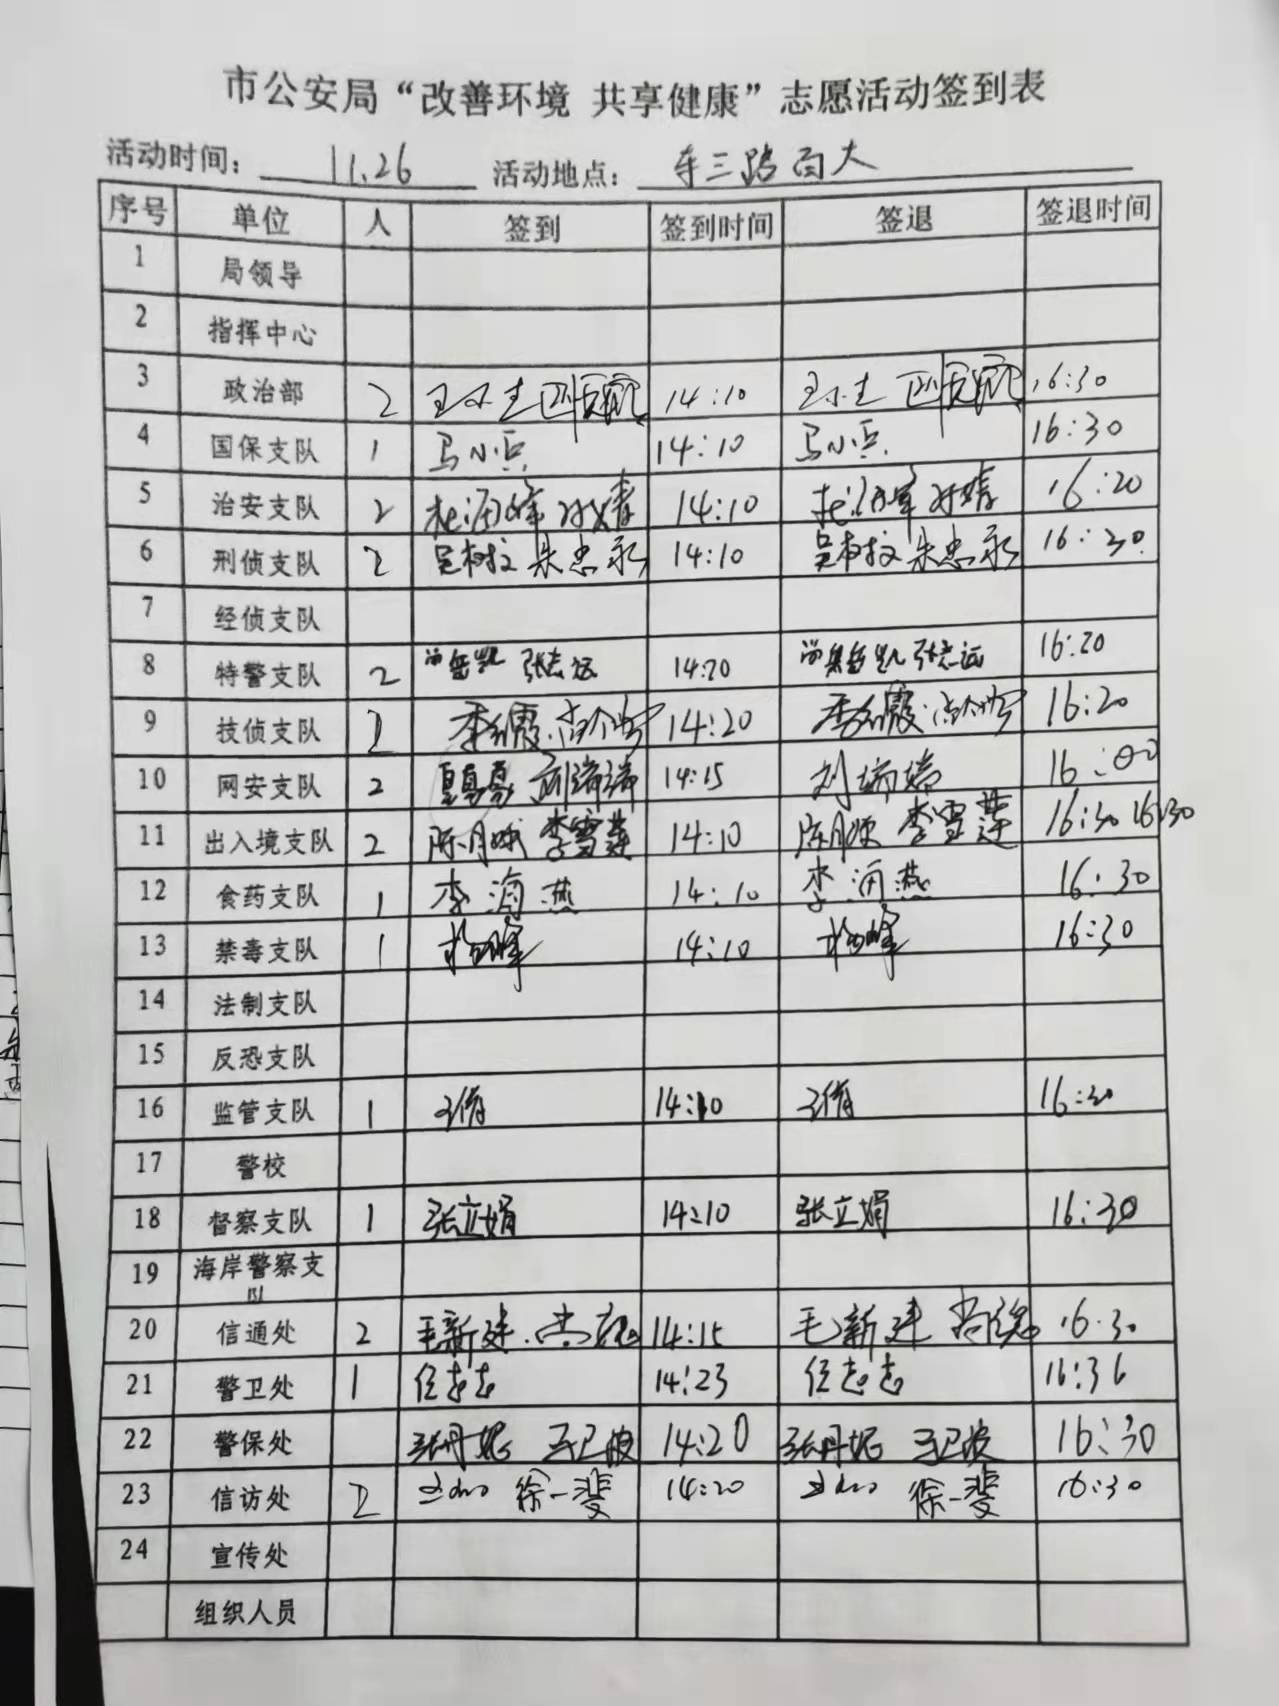 市公安局“改善环境 共享健康”志愿活动签到表
活动时间： 11.26 活动地点： 东三路百大
序号 单位 人 签到 签到时间 签退 签退时间
1 局领导
2 指挥中心
3 政治部 2 14:10 16:30
4 国保支队 1 马小兵 14:10 马小兵 16:30
5 治安支队 2 14:10 16:20
6 刑侦支队 2 朱忠永 14:10 朱忠永 16:30
7 经侦支队
8 特警支队 2 张志远 14:20 张志远 16:20
9 技侦支队 2 14:20 16:20
10 网安支队 2 14:15 16:00
11 出入境支队 2 陈月娥 李雪莲 14:10 陈月娥 李雪莲 16:30 16:30
12 食药支队 1 李海燕 14:10 李海燕 16:30
13 禁毒支队 1 14:10 16:30
14 法制支队
15 反恐支队
16 监管支队 1 14:10 16:30
17 警校
18 督察支队 1 张立娟 14:10 张立娟 16:30
19 海岸警察支
队
20 信通处 2 毛新建 14:15 毛新建 16:30
21 警卫处 1 14:23 16:36
22 警保处 张丹妮 王卫波 14:20 张丹妮 王卫波 16:30
23 信访处 2 徐一斐 14:20 徐一斐 16:30
24 宣传处
组织人员